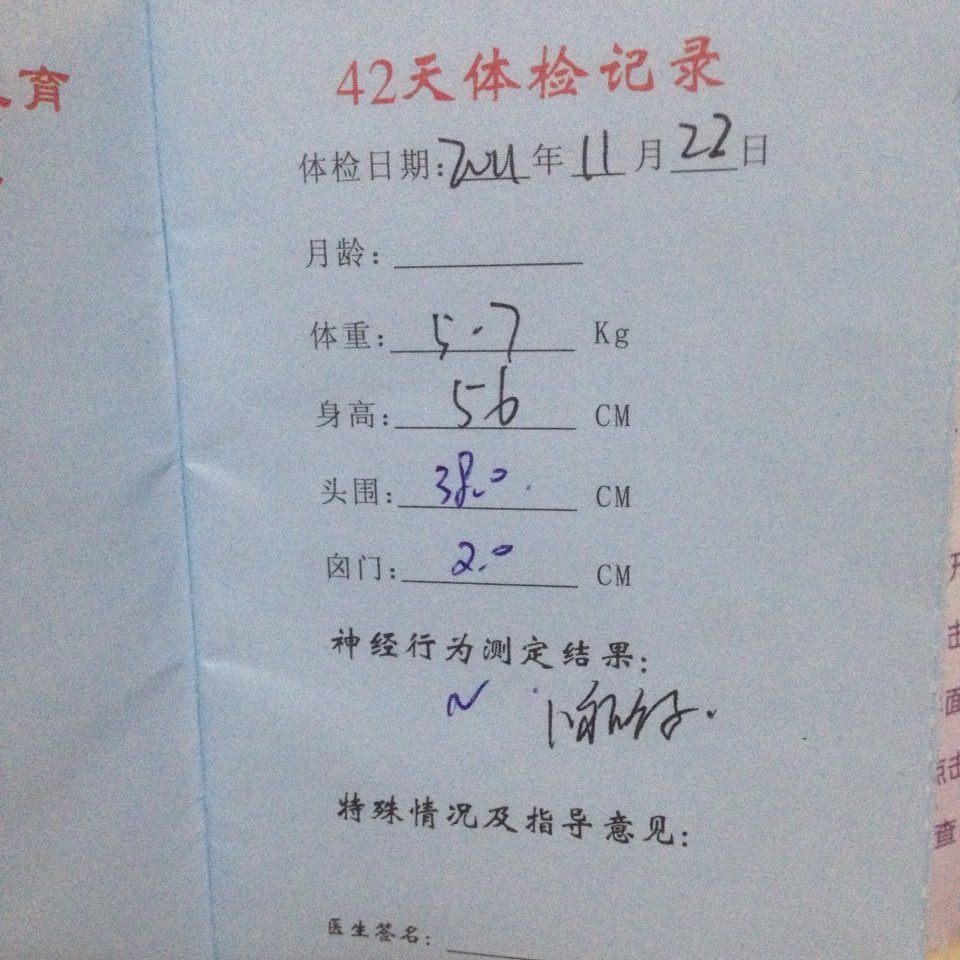 育
42天体检记录
体检日期:2011年11月22日
月龄:
体重: 5.7 Kg
身高: 56 CM
头围: 38.0 CM
囟门: 2.0 CM
神经行为测定结果:
N
特殊情况及指导意见:
医生签名:
击
面
点击
查